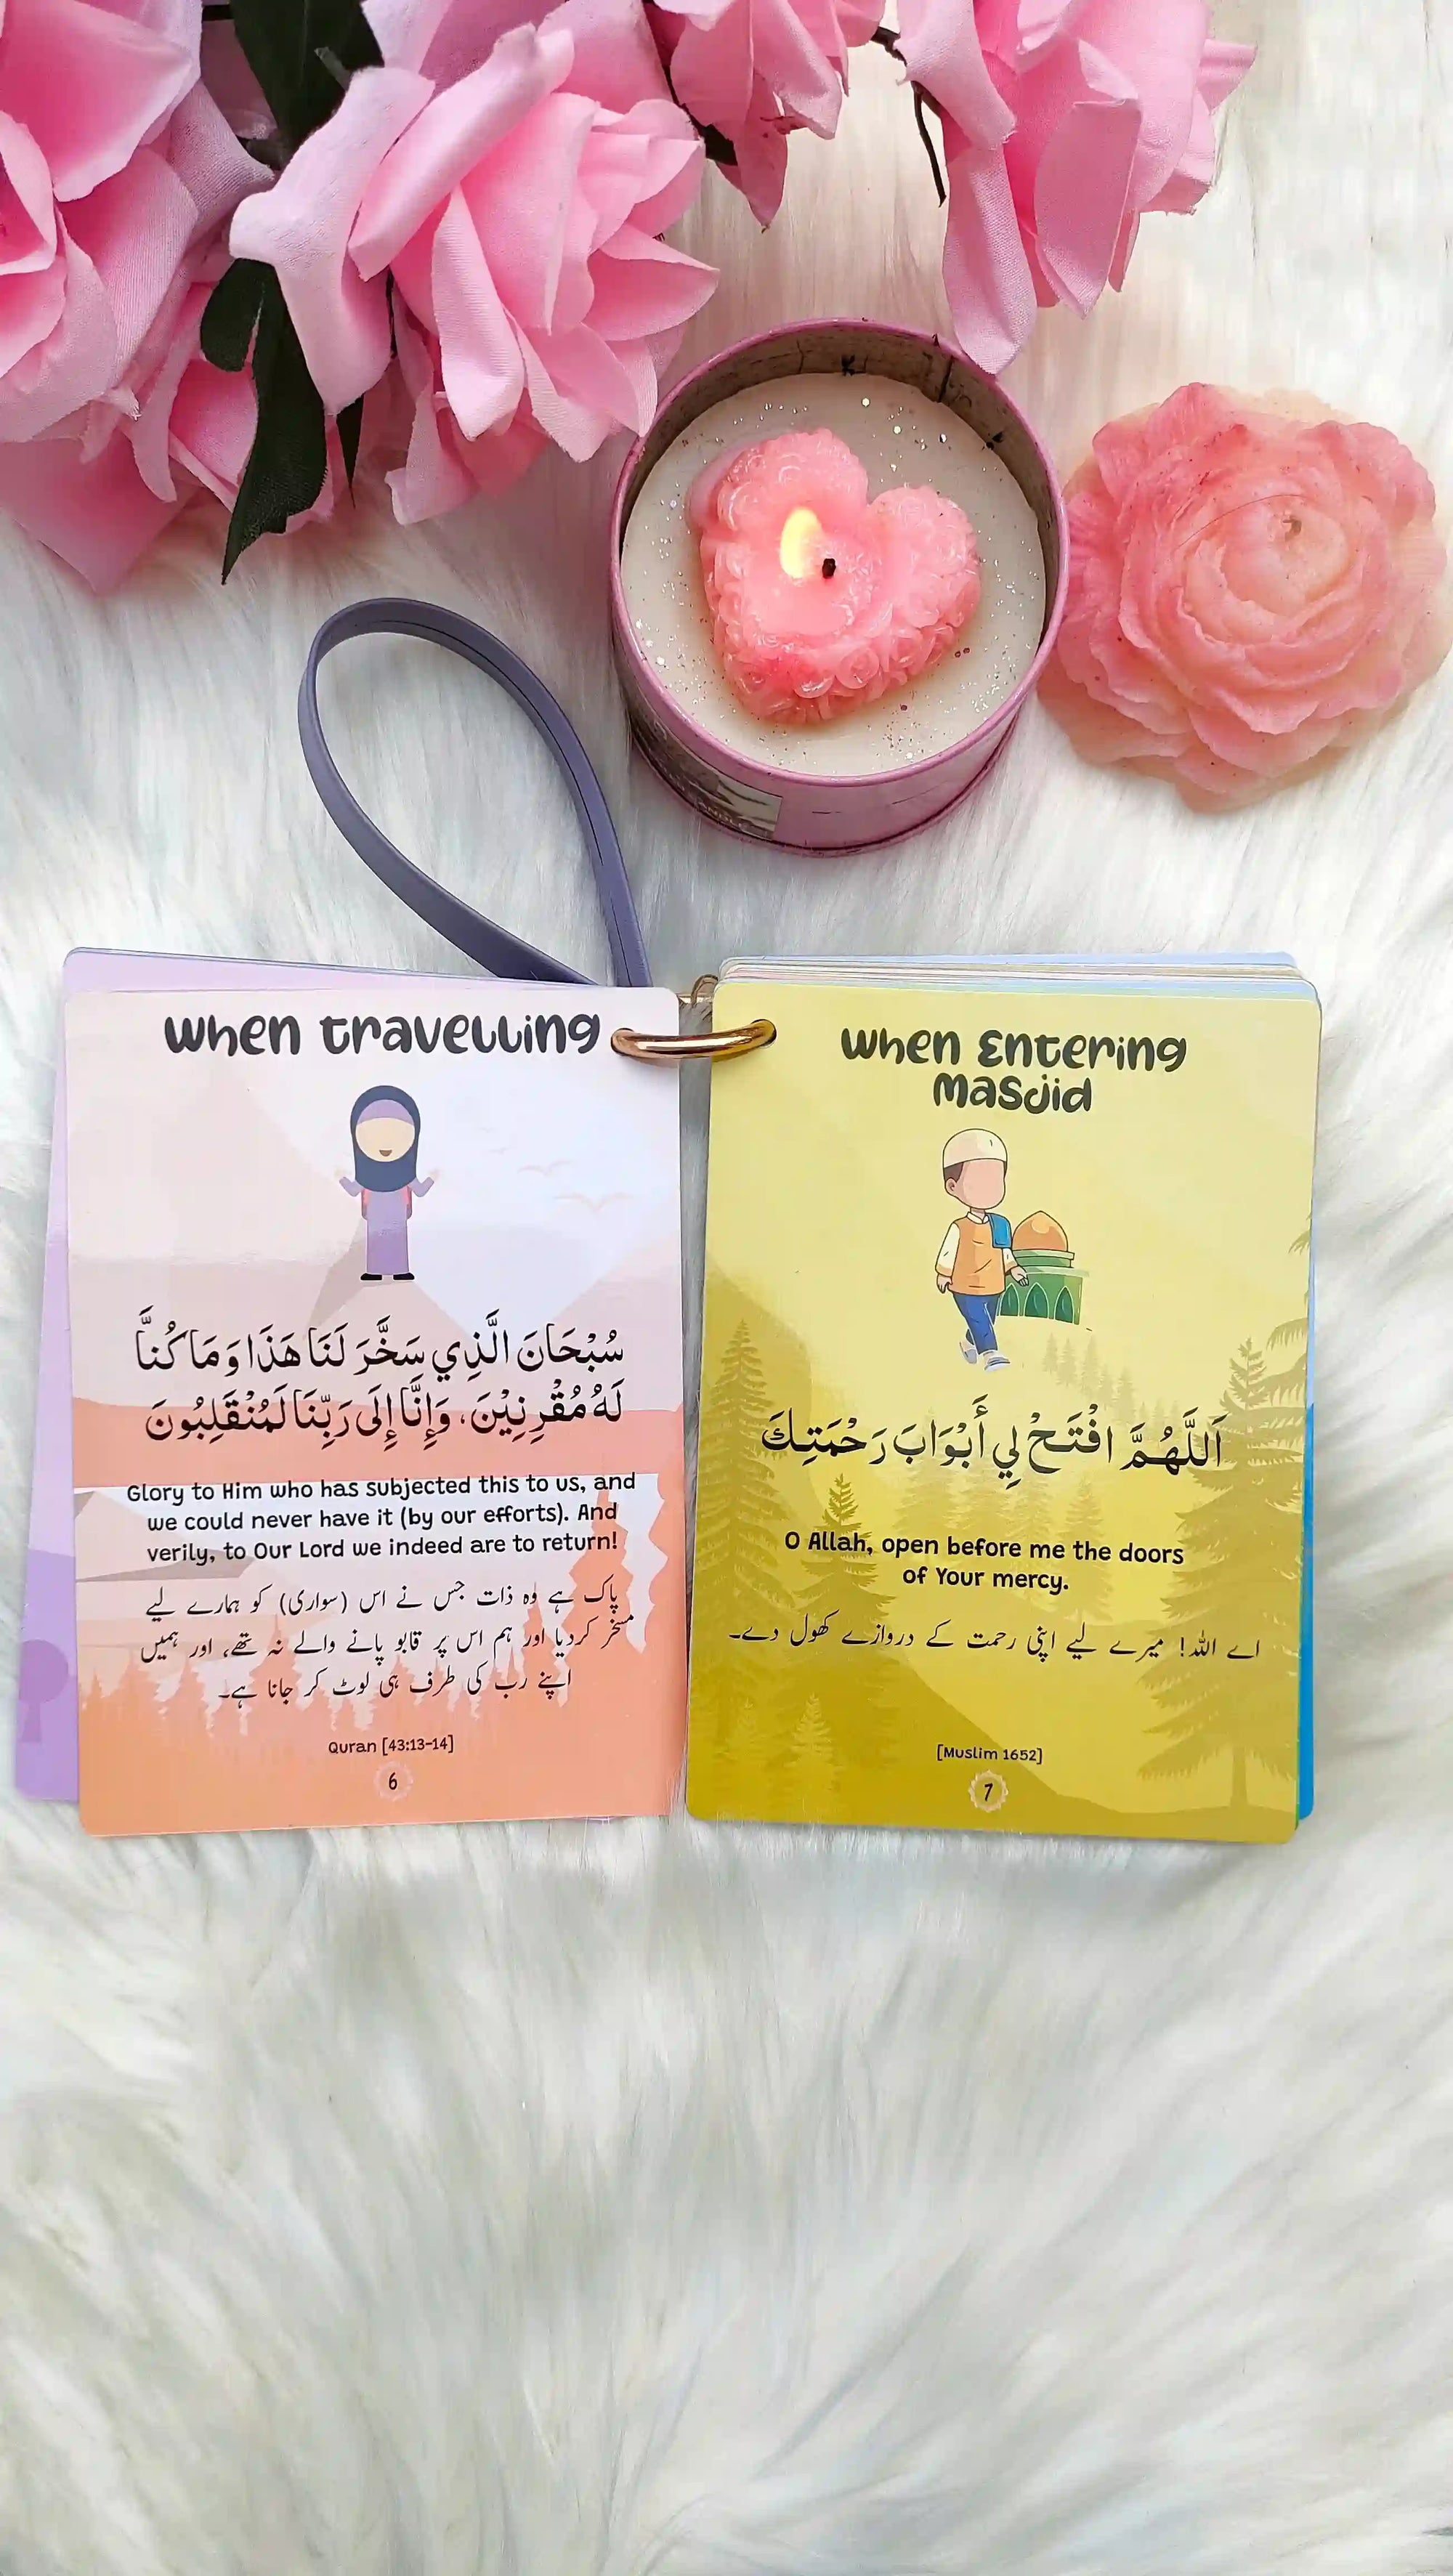 when travelling
سُبْحَانَ الَّذِي سَخَّرَ لَنَا هَذَا وَمَا كُنَّا
لَهُ مُقْرِنِيْنَ، وَإِنَّا إِلَى رَبِّنَا لَمُنْقَلِبُونَ
Glory to Him who has subjected this to us, and
we could never have it (by our efforts). And
verily, to Our Lord we indeed are to return!
پاک ہے وہ ذات جس نے اس (سواری) کو ہمارے لیے
مسخر کردیا اور ہم اس پر قابو پانے والے نہ تھے، اور ہمیں
اپنے رب کی طرف ہی لوٹ کر جانا ہے۔
Quran [43:13-14]
6
when Entering
masjid
اَللَّهُمَّ افْتَحْ لِي أَبْوَابَ رَحْمَتِكَ
O Allah, open before me the doors
of Your mercy.
اے اللہ! میرے لیے اپنی رحمت کے دروازے کھول دے۔
[Muslim 1652]
7